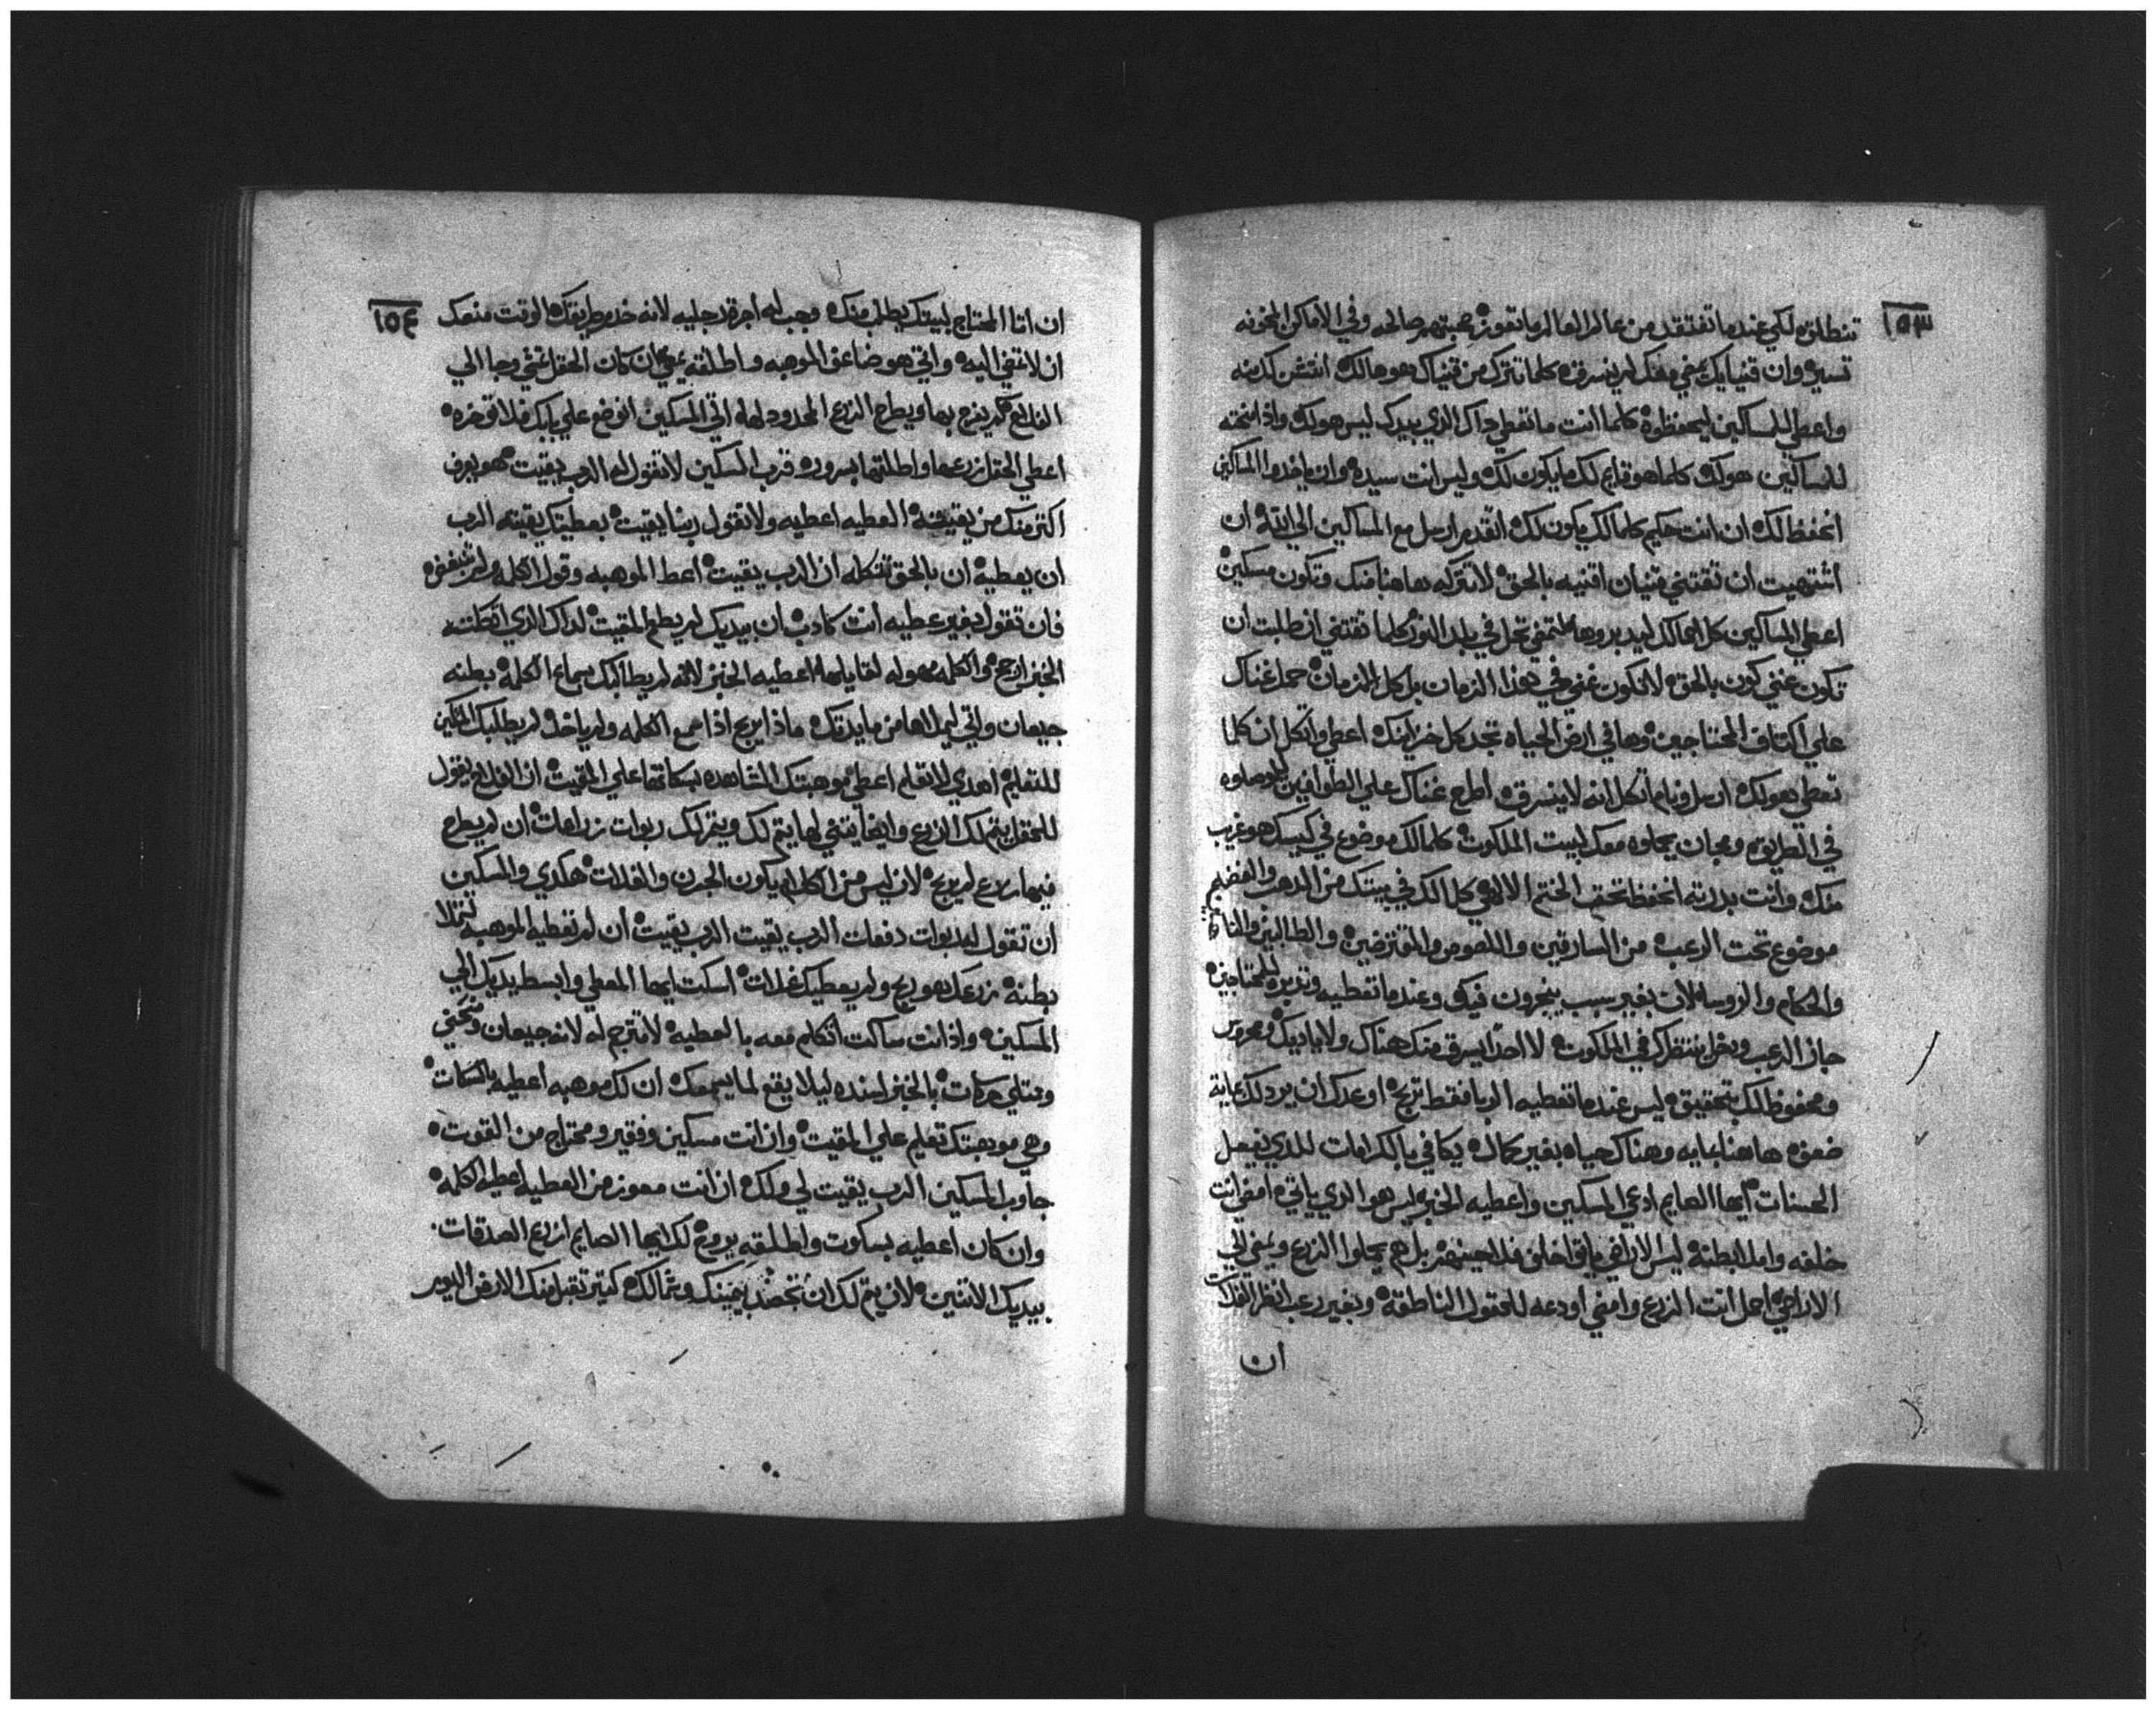 ١٥٣
تنطلق لكي عندما تفتقد من عالم العالم ما تعوز محبتهم صالحه وفي الاماكن المحزنه
تسير وان قنيانك يمضي منك لم ينسرق كلما تترك من قنياك هو هالك
واعطي للمساكين ليحفظوه كلما انت ما تعطي داك الذي بيدك ليس هو لك واذا منحته
للمساكين هو لك كلما هو قايم لك ما يكون لك وليس انت سيده وان ياخدوا المساكين
انحفظ لك ان انت حكيم كلما لك يكون لك اتقدم ارسل مع المساكين الي ان
اشتهيت ان تقتني قنيان اقنيه بالحق لا تتركه هاهنا منك وتكون مسكين
اعطي المساكين كل مالك ليدبروها لتمضي تحل في بلد النور كلما تقتني ان طلبت ان
تكون غني كون بالحق لا تكون غني في هذا الزمان بل كل الازمان حمل غناك
علي اكتاف المحتاجين وها في ارض الحياه تجد كل خزاينك اعطي واتكل ان كلما
تعطي هو لك ارسل قدامك اتكل انه لا ينسرق اطرح غناك علي الطوافين
في الطريق ومجان يحملوه معك لبيت الملكوت كلما لك موضوع في كيسك هو غريب
منك وانت بدرته انحفظ تحت الختم الالاهي كل الك في بيتك من الدهب والفضه
موضوع تحت الرعب من السارقين واللصوص والمقترضين والطالبين
والحكام والروسا لان بغير سبب ينجرون فيك وعندما تعطيه وتدبره للمحتاجين
جاز الرعب وبفرح ينتظرك في الملكوت لا احد يسرق منك هناك ولا يادبك
ومحفوظ لك بتحقيق ليس عندما تعطيه الربا فقط تربح اوعدك ان يرد لك مايه
ضعف هاهنا مايه وهناك حياه بغير كمال يكافي بالكرامات للذي يفعل
الحسنات ايها الصايم ادعي المسكين واعطيه الخبز ليس هو الذي ياتي امضي انت
خلفه واملا بطنه ليس الاراضي ياتوا خلف فلاحينهم بل هم يحملوا الزرع ويمضي الي
الاراضي احمل انت الزرع وامضي اودعه للحقول الناطقه وبغير رعب انظر الغلات
ان
١٥٤
ان اتا المحتاج لبيتك يطلب منك وجب له اجرة رجليه لانه خدم طريقك الوقت منعك
ان لا تمضي اليه واتي هو ضاعف الموهبه واطلقه يمضي ان كان الحقل تمشي وجا الي
الفلاح لم يفرح بها ويطرح الزرع المحدود لها اتي المسكين اتوضع علي بابك فلا توخره
اعطي الحقل زرعها واطلقها بسرور قرب المسكين لا تقول له الرب يقيت هو يعرف
اكتر منك من يقيته العطيه اعطيه ولا تقول ربنا يقيت بعطيتك يقيته الرب
ان يعطيه ان بالحق تتكله ان الرب يقيت اعط الموهبه وقول الكلمه ولم تنبغض
فان تقول بغير عطيه انت كادب ان بيديك لم يطعم المقيت لداك الذي اتكلت
الخبز ارجح والكلمه سهوله لقايلها اعطيه الخبز لانه لم يطالبك سماع الكلمه بطنه
جيعان واتي ليملاها من مايدتك ماذا يربح اذا سمع الكلمه ولم ياخد لم يطلبك المسكين
للتعليم اهدي لا تعلم اعطي موهبتك للشاهده بسكاتها علي المقيت ان الفلاح يقول
للحقل يتم لك الزرع وايضا يتني لها يتم لك ويتم لك ربوات زراعات ان لم يطرح
فيها زرع لم يربح لان ليس من الكلام يكون الجرن والغلات هكدي والمسكين
ان تقول له ربوات دفعات الرب يقيت الرب يقيت ان لم تعطيه الموهبه لتملا
بطنه زرعك هو ريح ولم يعطيك غلات اسكت ايها المعطي وابسط يديك الي
المسكين واذ انت ساكت اتكلم معه بالعطيه لا تترجم له لانه جيعان ومنحني
وممتلي حركات بالخبز اسنده ليلا يقع لما يسمعك ان لك موهبه اعطيه بالسكات
وهي موهبتك تعلم علي المقيت وان انت مسكين وفقير ومحتاج من القوت
جاوب المسكين الرب يقيت لي ولك ان انت معوز من العطيه اعطيه الكلمه
وان كان اعطيه بسكوت واطلقه يروح لك ايها الصايم ازرع الصدقات
بيديك الاتنين لان يتم لك ان تحصد بيمينك وشمالك كتير تقبل منك الارض اليوم